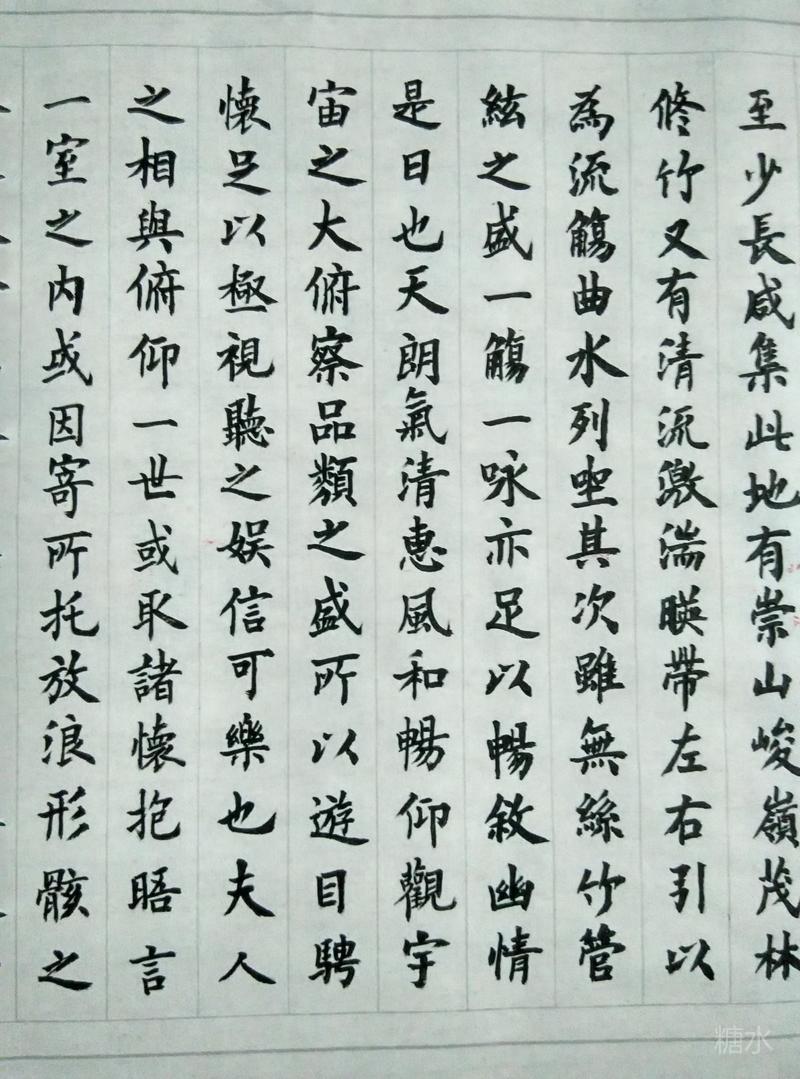 至少長咸集此地有崇山峻嶺茂林
修竹又有清流激湍暎帶左右引以
為流觴曲水列坐其次雖無絲竹管
絃之盛一觴一詠亦足以暢敘幽情
是日也天朗氣清惠風和暢仰觀宇
宙之大俯察品類之盛所以遊目騁
懷足以極視聽之娛信可樂也夫人
之相與俯仰一世或取諸懷抱晤言
一室之內或因寄所托放浪形骸之
糖水